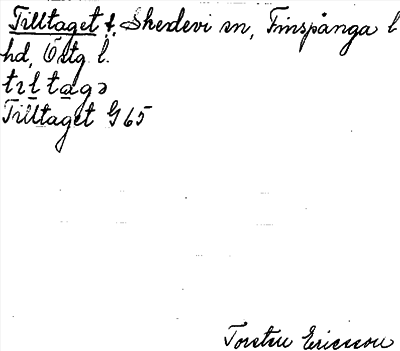 Tilltaget t. Skedevi sn, Finspånga l
hd, Östg l.
tɩltagə
Tilltaget G 65
Torsten Ericsson